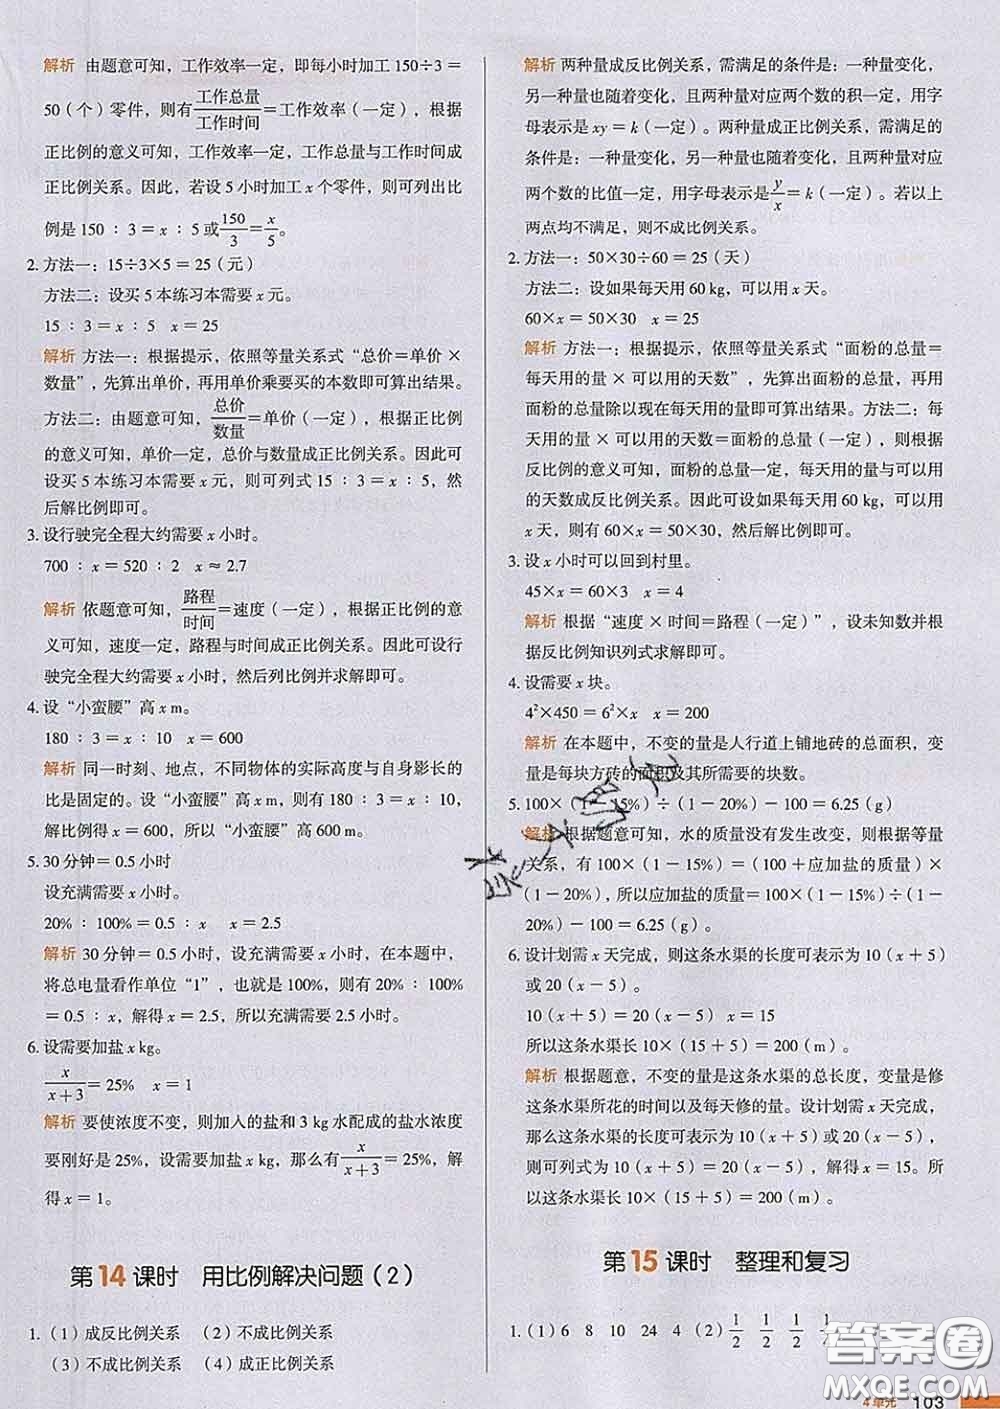 解析 由题意可知，工作效率一定，即每小时加工 150÷3＝
50（个）零件，则有工作总量/工作时间＝工作效率（一定），根据
正比例的意义可知，工作效率一定，工作总量与工作时间成
正比例关系。因此，若设 5 小时加工 x 个零件，则可列出比
例是 150∶3＝x∶5 或150/3＝x/5。
2. 方法一：15÷3×5＝25（元）
方法二：设买 5 本练习本需要 x 元。
15∶3＝x∶5 x＝25
解析 方法一：根据提示，依照等量关系式“总价＝单价×
数量”，先算出单价，再用单价乘要买的本数即可算出结果。
方法二：由题意可知，总价/数量＝单价（一定），根据正比例
的意义可知，单价一定，总价与数量成正比例关系。因此可
设买 5 本练习本需要 x 元，则可列式 15∶3＝x∶5，然
后解比例即可。
3. 设行驶完全程大约需要 x 小时。
700∶x＝520∶2 x≈2.7
解析 依题意可知，路程/时间＝速度（一定），根据正比例的意
义可知，速度一定，路程与时间成正比例关系。可设行
驶完全程大约需要 x 小时，然后列比例并求解即可。
4. 设“小蛮腰”高 x m。
180∶3＝x∶10 x＝600
解析 同一时刻、地点，不同物体的实际高度与自身影长的
比是固定的。设“小蛮腰”高 x m，则有 180∶3＝x∶10，
解比例得 x＝600，所以“小蛮腰”高 600 m。
5. 30 分钟＝0.5 小时
设充满需要 x 小时。
20%∶100%＝0.5∶x x＝2.5
解析 30 分钟＝0.5 小时，设充满需要 x 小时，在本题中，
将总电量看作单位“1”，也就是 100%，则有 20%∶100%
＝0.5∶x，解得 x＝2.5，所以充满需要 2.5 小时。
6. 设需要加盐 x kg。
x/(x＋3)＝25% x＝1
解析 要使浓度不变，则加入的盐和 3 kg 水配成的盐水浓度
要刚好是 25%，设需要加盐 x kg，那么有x/(x＋3)＝25%，解
得 x＝1。
第14课时 用比例解决问题（2）
1.（1）成反比例关系 （2）不成比例关系
（3）不成比例关系 （4）成正比例关系
解析 两种量成反比例关系，需满足的条件是：一种量变化，
另一种量也随着变化，且两种量对应两个数的积一定，用字
母表示是 xy＝k（一定）。两种量成正比例关系，需满足的
条件是：一种量变化，另一种量也随着变化，且两种量对应
两个数的比值一定，用字母表示是y/x＝k（一定）。若以上
两点均不满足，则不成比例关系。
2. 方法一：50×30÷60＝25（天）
方法二：设如果每天用 60 kg，可以用 x 天。
60×x＝50×30 x＝25
解析 方法一：根据提示，依照等量关系式“面粉的总量＝
每天用的量×可以用的天数”，先算出面粉的总量，再用
面粉的总量除以现在每天用的量即可算出结果。方法二：每
天用的量×可以用的天数＝面粉的总量（一定），则根据
反比例的意义可知，面粉的总量一定，每天用的量与可以用
的天数成反比例关系。因此可设如果每天用 60 kg，可以用
x 天，则有 60×x＝50×30，然后解比例即可。
3. 设 x 小时可以回到村里。
45×x＝60×3 x＝4
解析 根据“速度×时间＝路程（一定）”，设未知数并根
据反比例知识列式求解即可。
4. 设需要 x 块。
4²×450＝6²×x x＝200
解析 在本题中，不变的量是人行道上铺地砖的总面积，变
量是每块方砖的面积及其所需要的块数。
5. 100×（1－15%）÷（1－20%）－100＝6.25（g）
解析 根据题意可知，水的质量没有发生改变，则根据等量
关系，有 100×（1－15%）＝（100＋应加盐的质量）×
（1－20%），所以应加盐的质量＝100×（1－15%）÷
（1－20%）－100＝6.25（g）。
6. 设计划需 x 天完成，则这条水渠的长度可表示为 10（x＋5）
或 20（x－5）。
10（x＋5）＝20（x－5） x＝15
所以这条水渠长 10×（15＋5）＝200（m）。
解析 根据题意，不变的量是这条水渠的总长度，变量是修
这条水渠所花的时间以及每天修的量。设计划需 x 天完成，
那么这条水渠的长度可表示为 10（x＋5）或 20（x－5），
则可列式为 10（x＋5）＝20（x－5），解得 x＝15。所
以这条水渠长 10×（15＋5）＝200（m）。
第15课时 整理和复习
1.（1）6 8 10 24 4 （2）1/2 1/2 1/2
答案圈
MXQE.COM
4 单元 103